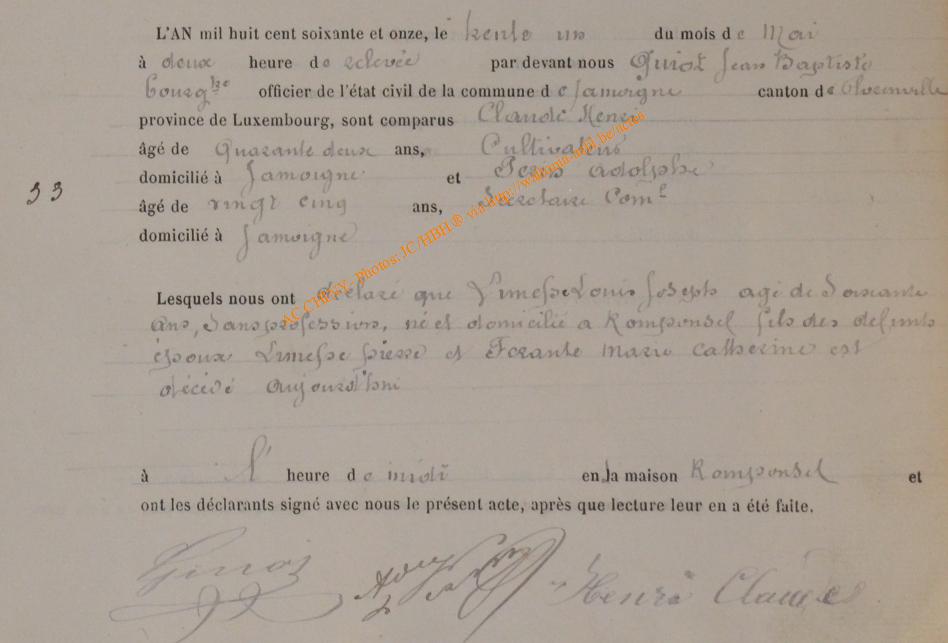 L'AN mil huit cent soixante et onze, le trente un du mois de Mai
à deux heure de relevée par devant nous Guiot Jean Baptiste
bourgtre officier de l'état civil de la commune de Jamoigne canton de Florenville
province de Luxembourg, sont comparus Claude Henri
âgé de Quarante deux ans, Cultivateur
domicilié à Jamoigne et Adolphe
33
âgé de vingt cinq ans, Secrétaire Coml
domicilié à Jamoigne
Lesquels nous ont déclaré que Limesse Louis Joseph agé de Soixante
ans, Sans profession, né et domicilié a Romponsel fils des defunts
époux Limesse pierre et Marie Catherine est
décédé aujourd'hui
à l' heure de midi en la maison Romponsel et
ont les déclarants signé avec nous le présent acte, après que lecture leur en a été faite.
Guiot Henri Claude